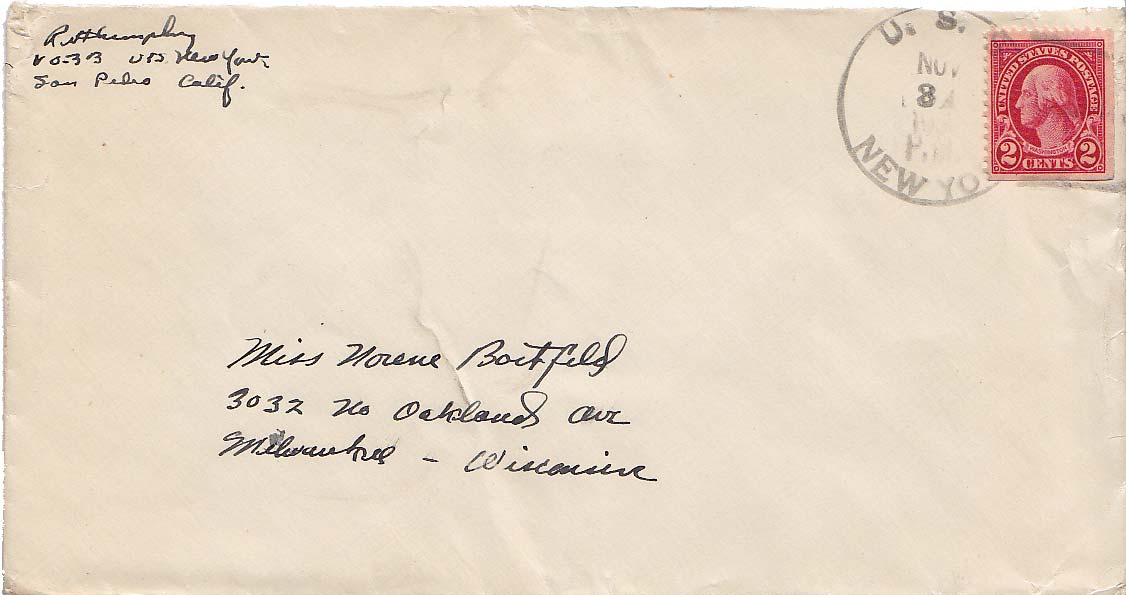 R H Humphrey
VO-3B USS New York
San Pedro Calif.
U. S.
NOV
8
P.M.
NEW YO
UNITED STATES POSTAGE
WASHINGTON
2 CENTS 2
Miss Norene
3032 No Oakland Ave
Milwaukee - Wisconsin